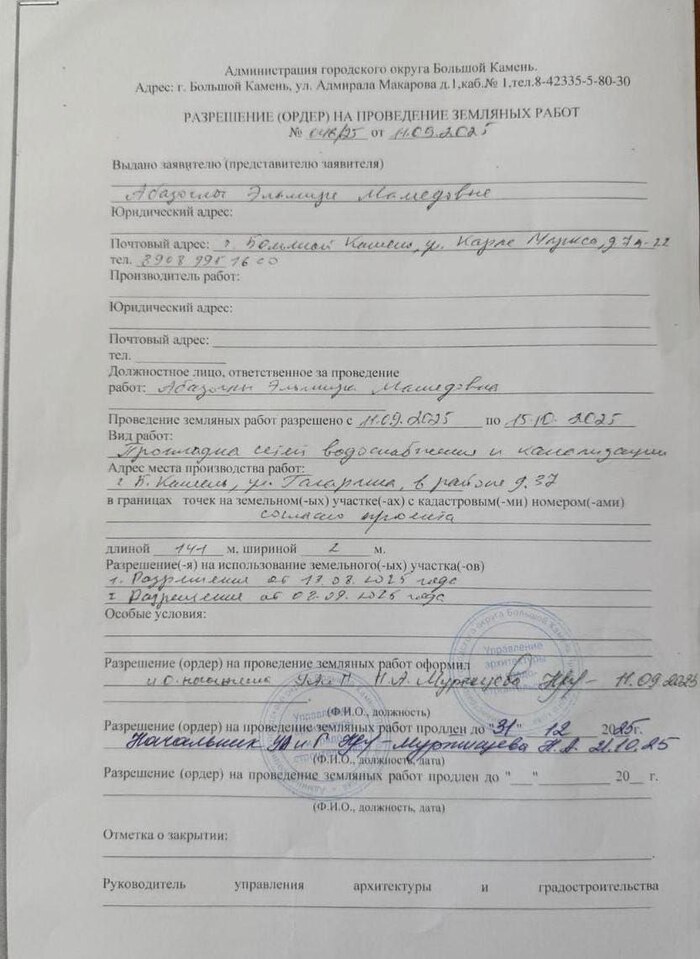 Администрация городского округа Большой Камень.
Адрес: г. Большой Камень, ул. Адмирала Макарова д.1,каб.№ 1,тел.8-42335-5-80-30
РАЗРЕШЕНИЕ (ОРДЕР) НА ПРОВЕДЕНИЕ ЗЕМЛЯНЫХ РАБОТ
№ 046/25 от 11.09.2025
Выдано заявителю (представителю заявителя)
Эльмире Мамедовне
Юридический адрес:
Почтовый адрес: г. Большой Камень, ул. Карла Маркса, д
тел. 8908 995 16 00
Производитель работ:
Юридический адрес:
Почтовый адрес:
тел.
Должностное лицо, ответственное за проведение
работ: Эльмира Мамедовна
Проведение земляных работ разрешено с 11.09.2025 по 15.10.2025
Вид работ:
Прокладка сетей водоснабжения и канализации
Адрес места производства работ:
г Б. Камень, ул. Гагарина, в районе д. 37
в границах точек на земельном(-ых) участке(-ах) с кадастровым(-ми) номером(-ами)
согласно проекта
длиной 141 м, шириной 2 м.
Разрешение(-я) на использование земельного(-ых) участка(-ов)
1. Разрешения от 13.08.2025 года
Разрешения от 02.09.2025 года
Особые условия:
Разрешение (ордер) на проведение земляных работ оформил
и.о. начальника УАиГ Н.А. 11.09.2025
(Ф.И.О., должность)
Разрешение (ордер) на проведение земляных работ продлен до "31" 12 2025г.
Начальник УАиГ Н.А. 21.10.25
(Ф.И.О., должность, дата)
Разрешение (ордер) на проведение земляных работ продлен до "__" 20__ г.
(Ф.И.О., должность, дата)
Отметка о закрытии:
Руководитель управления архитектуры и градостроительства